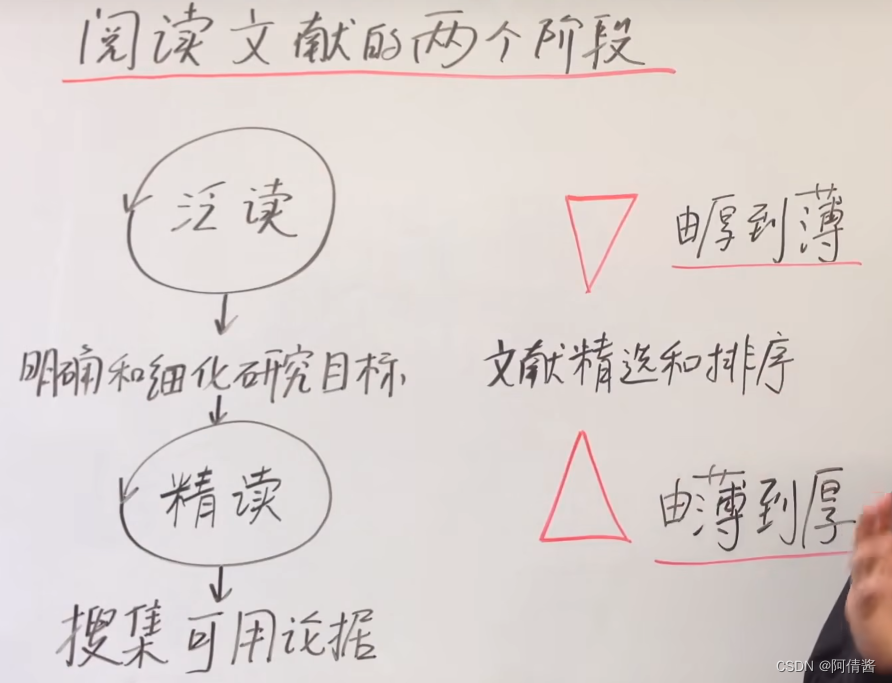 阅读文献的两个阶段
泛读
由厚到薄
明确和细化研究目标
文献精选和排序
精读
由薄到厚
搜集可用论据
CSDN @阿倩酱